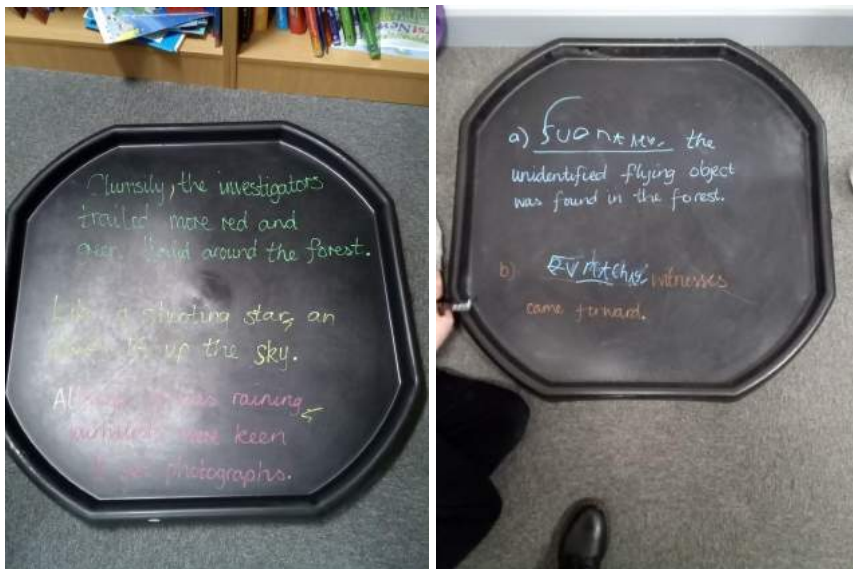 Clumsily, the investigators
trailed more red and
liquid around the forest.
Like a shooting star, an
lit up the sky.
Although it was raining,
journalists were keen
to get photographs.
a) the
unidentified flying object
was found in the forest.
b) witnesses
came forward.